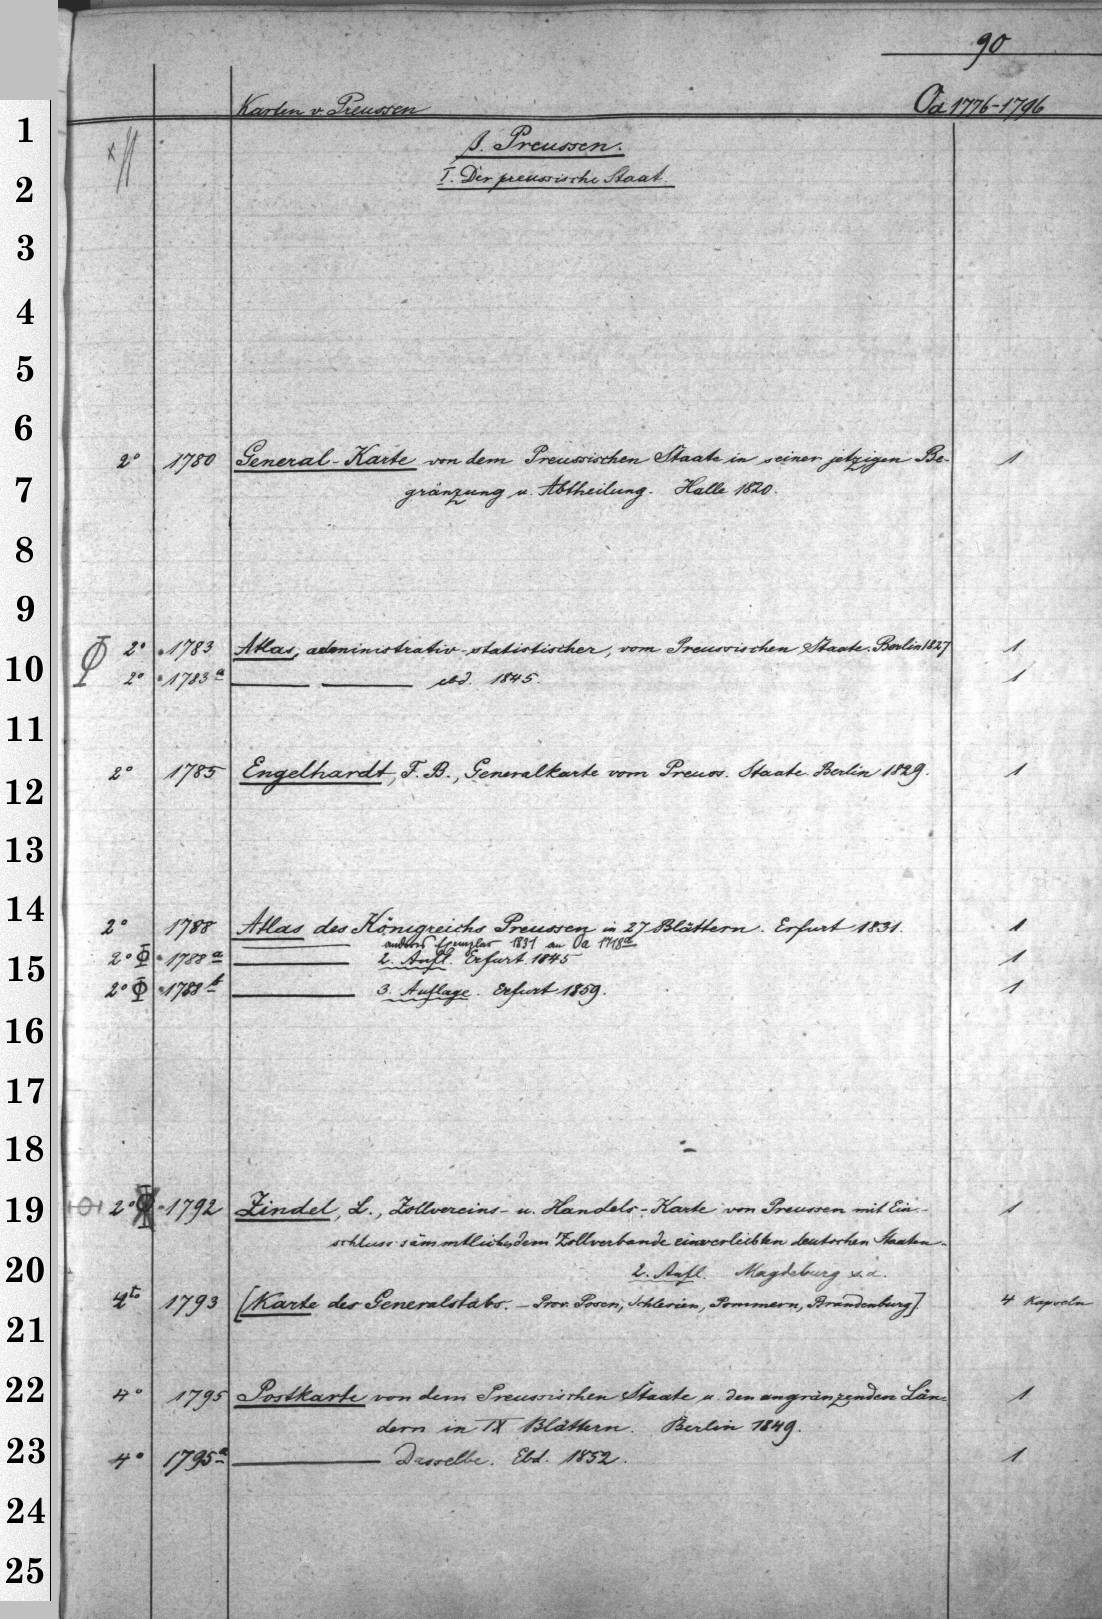 90
Karten v. Preussen Od 1776-1796
β. Preussen.
I. Der preussische Staat.
2° 1780 General-Karte von dem Preussischen Staate in seiner jetzigen Be- 1
gränzung u. Abtheilung. Halle 1820.
Φ 2° 1783 Atlas, administrativ-statistischer, vom Preussischen Staate. Berlin 1827 1
2° 1783a ebd. 1845. 1
2° 1785 Engelhardt, F. B., Generalkarte vom Preuss. Staate. Berlin 1829. 1
2° 1788 Atlas des Königreichs Preussen in 27 Blättern. Erfurt 1831. 1
anderes Exemplar 1831 an Oa 1718a
2° Φ 1788a 2. Aufl. Erfurt 1845 1
2° Φ 1788b 3. Auflage. Erfurt 1859. 1
2° Φ 1792 Zindel, L., Zollvereins- u. Handels-Karte von Preussen mit Ein- 1
schluss sämmtlicher dem Zollverbande einverleibten deutschen Staaten.
2. Aufl. Magdeburg s.a.
4to 1793 [Karte des Generalstabs. - Prov. Posen, Schlesien, Pommern, Brandenburg]. 4 Kapseln
4° 1795 Postkarte von dem Preussischen Staate u. den angränzenden Län- 1
dern in IX Blättern. Berlin 1849.
4° 1795a Dasselbe. Ebd. 1852. 1
1
2
3
4
5
6
7
8
9
10
11
12
13
14
15
16
17
18
19
20
21
22
23
24
25